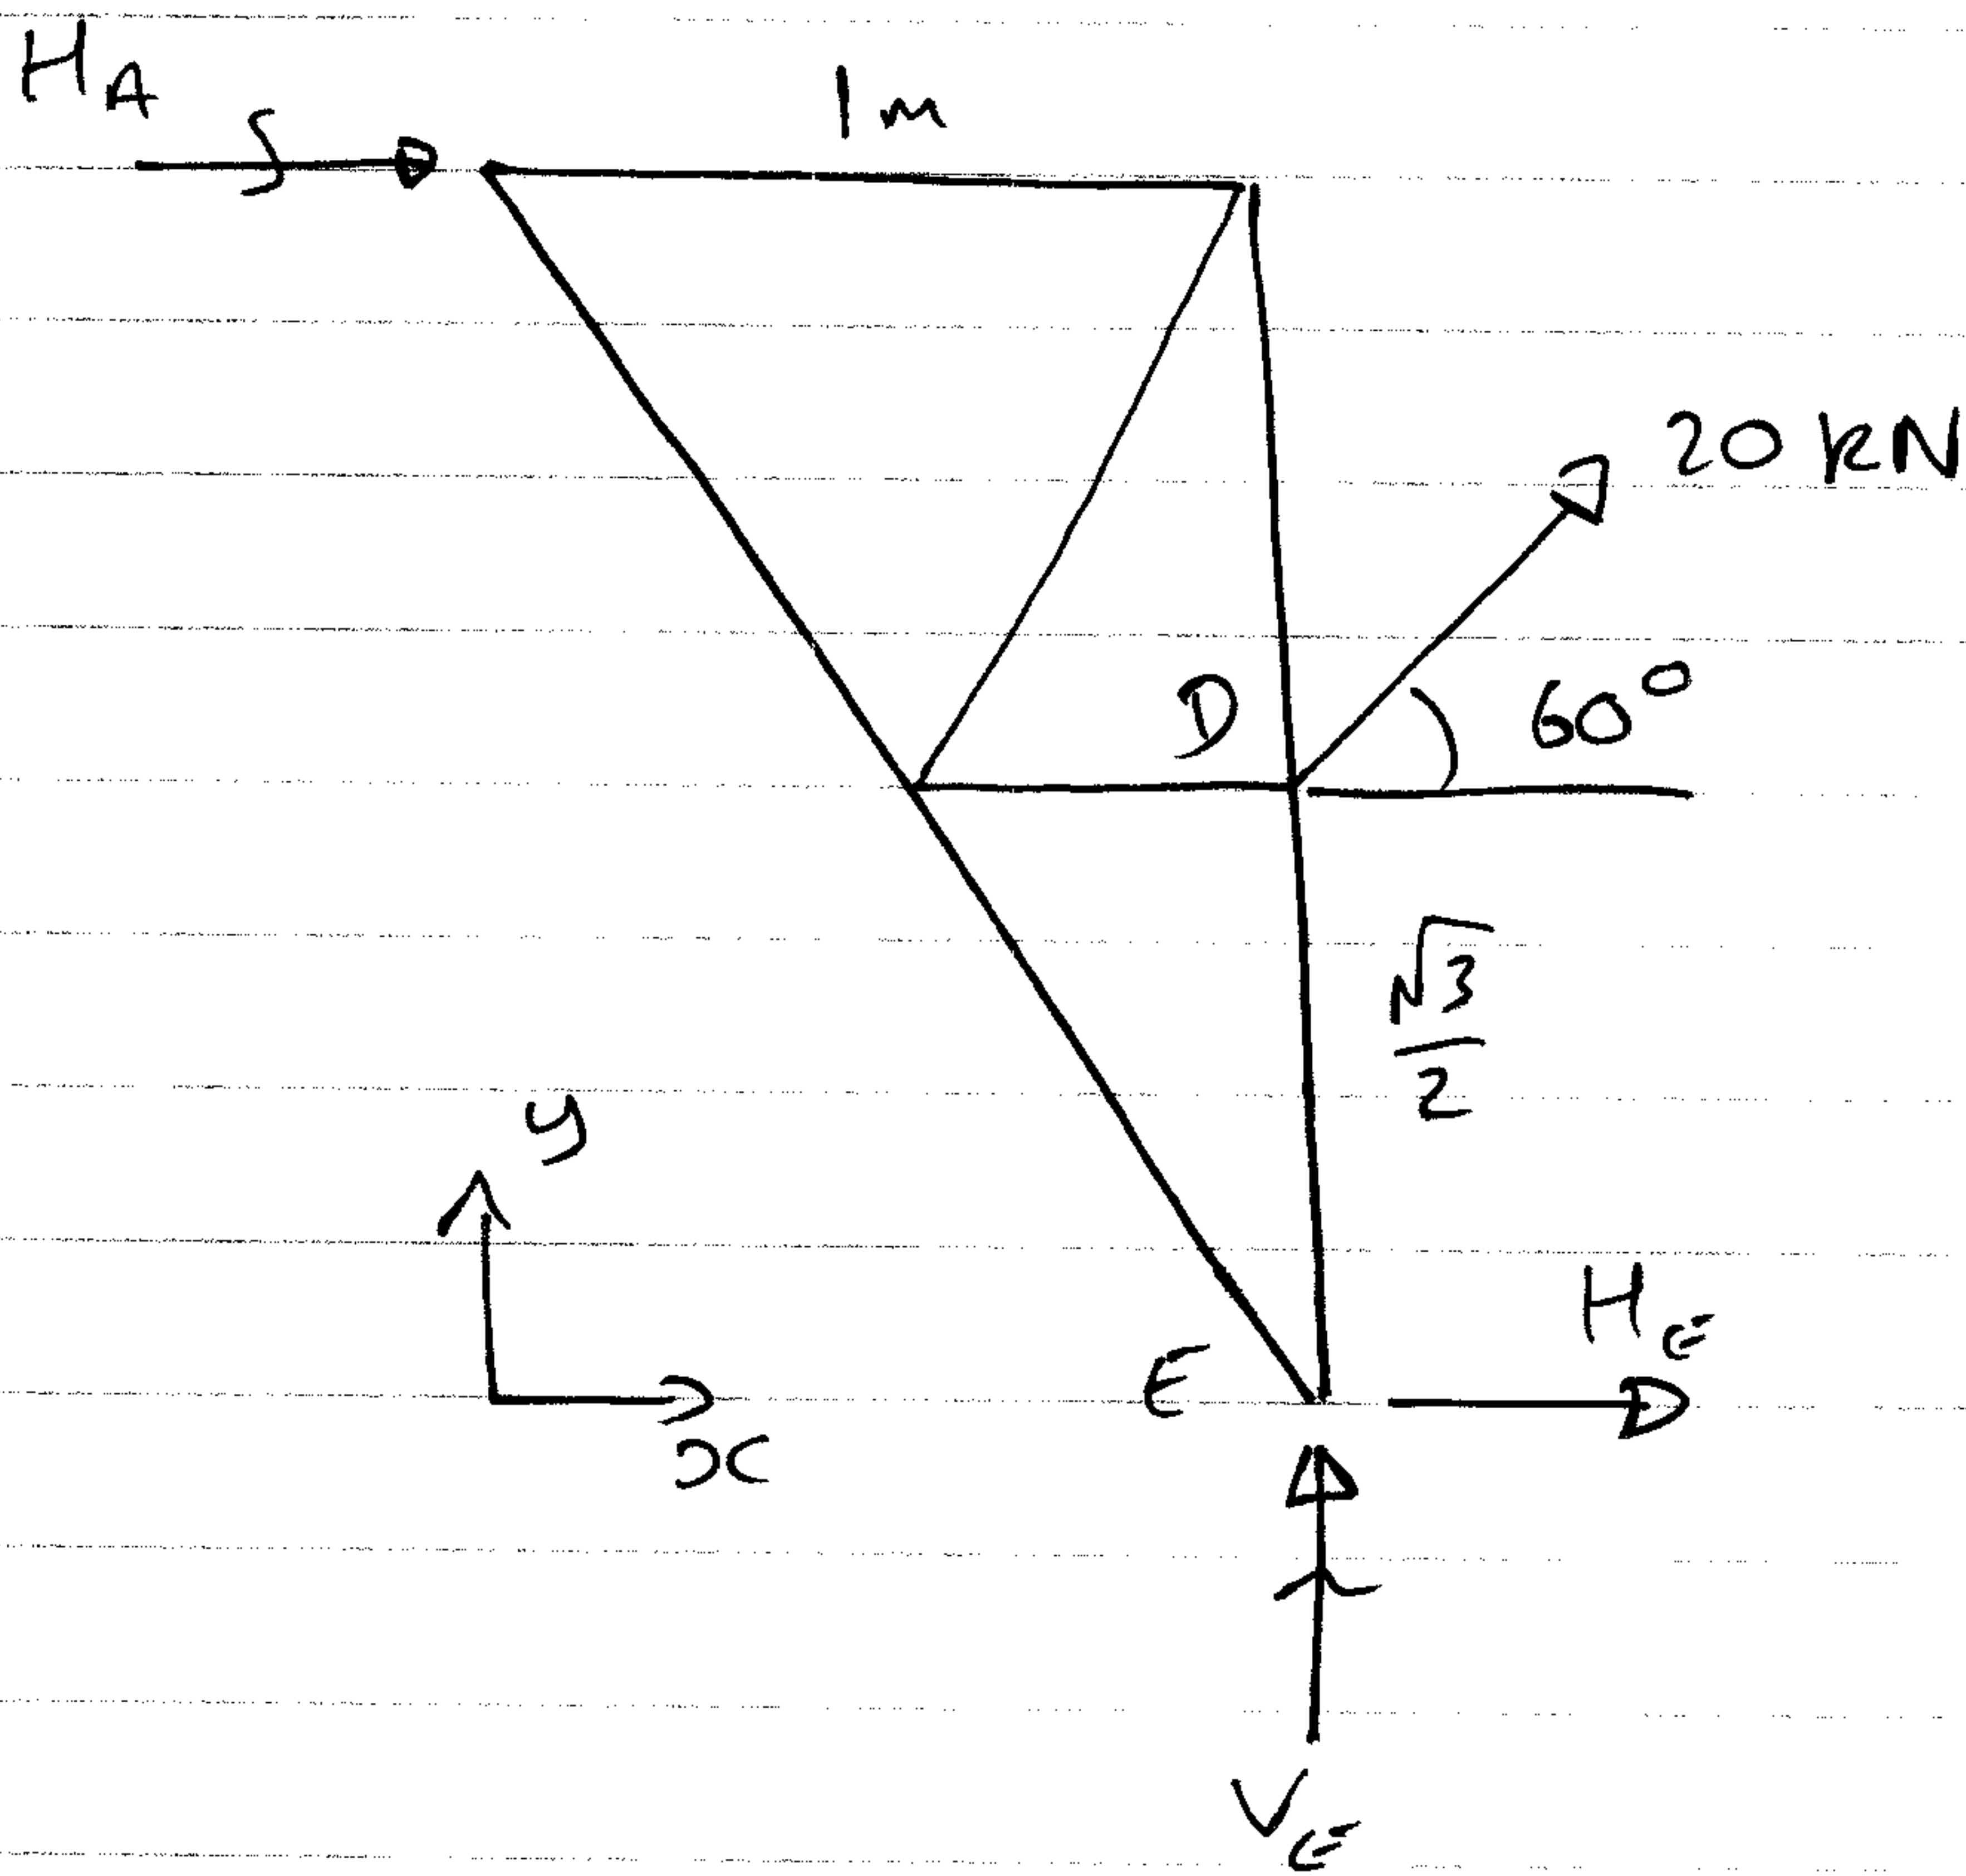 H_A
1m
20 kN
D
60°
√3/2
y
x
E
H_E
V_E